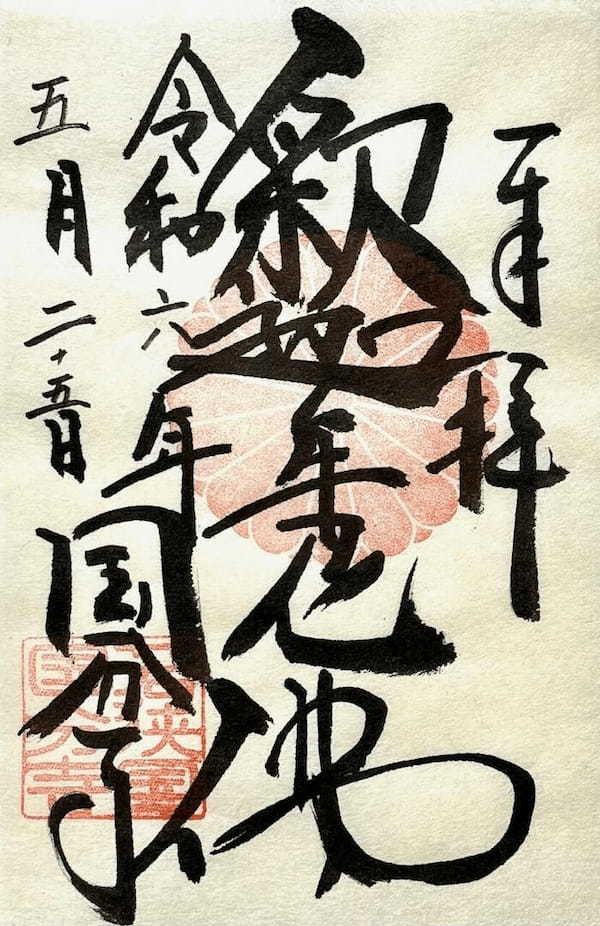 奉拝
釈迦牟尼佛
令和六年
五月二十五日
国分寺